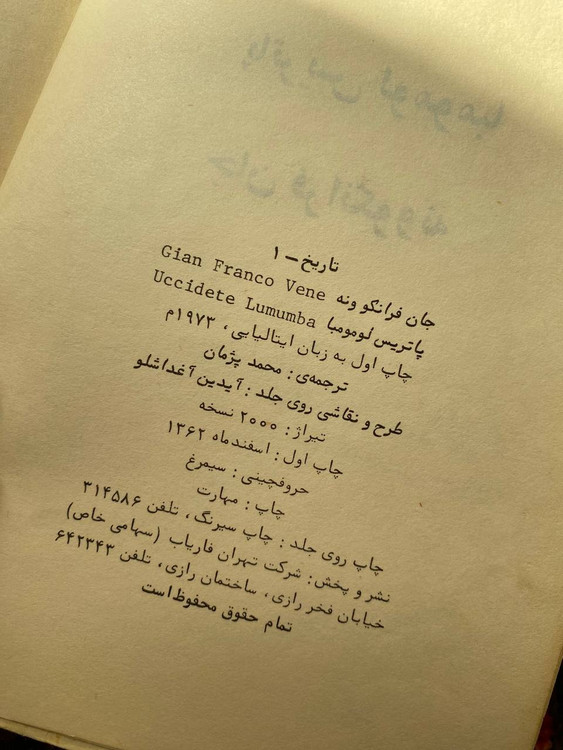 تاریخ – ۱
جان فرانگو ونه Gian Franco Vene
پاتریس لومومبا Uccidete Lumumba
چاپ اول به زبان ایتالیایی، ۱۹۷۳م
ترجمه‌ی: محمد پژمان
طرح و نقاشی روی جلد: آیدین آغداشلو
تیراژ: ۲۰۰۰ نسخه
چاپ اول: اسفندماه ۱۳۶۲
حروفچینی: سیمرغ
چاپ: مهارت
چاپ روی جلد: چاپ سیرنگ، تلفن ۳۱۴۵۸۶
نشر و پخش: شرکت تهران فاریاب (سهامی خاص)
خیابان فخر رازی، ساختمان رازی، تلفن ۶۴۲۳۴۳
تمام حقوق محفوظ است
پاتریس لومومبا
جان فرانگو ونه